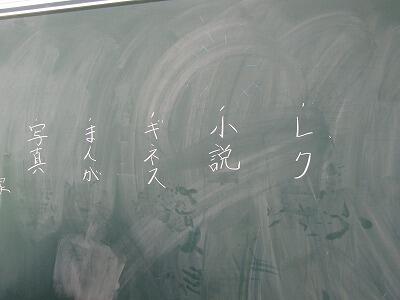 ・レク
・小説
・ギネス
・まんが
・写真